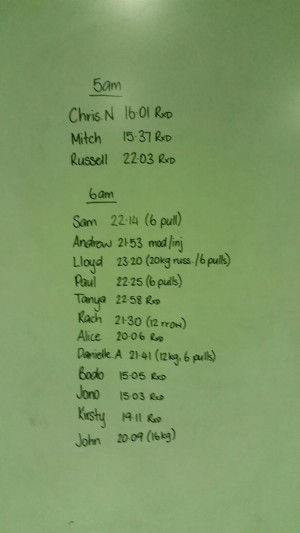 5am
Chris N 16:01 RXD
Mitch 15:37 RXD
Russell 22:03 RXD
6am
Sam 22:14 (6 pull)
Andrew 21:53 mod/inj
Lloyd 23:20 (20kg russ./6 pulls)
Paul 22:25 (6 pulls)
Tanya 22:58 RXD
Rach 21:30 (12 rrow)
Alice 20:06 RXD
Danielle.A 21:41 (12kg, 6 pulls)
Bodo 15:05 RXD
Jono 15:03 RXD
Kirsty 19:11 RXD
John 20:09 (16kg)